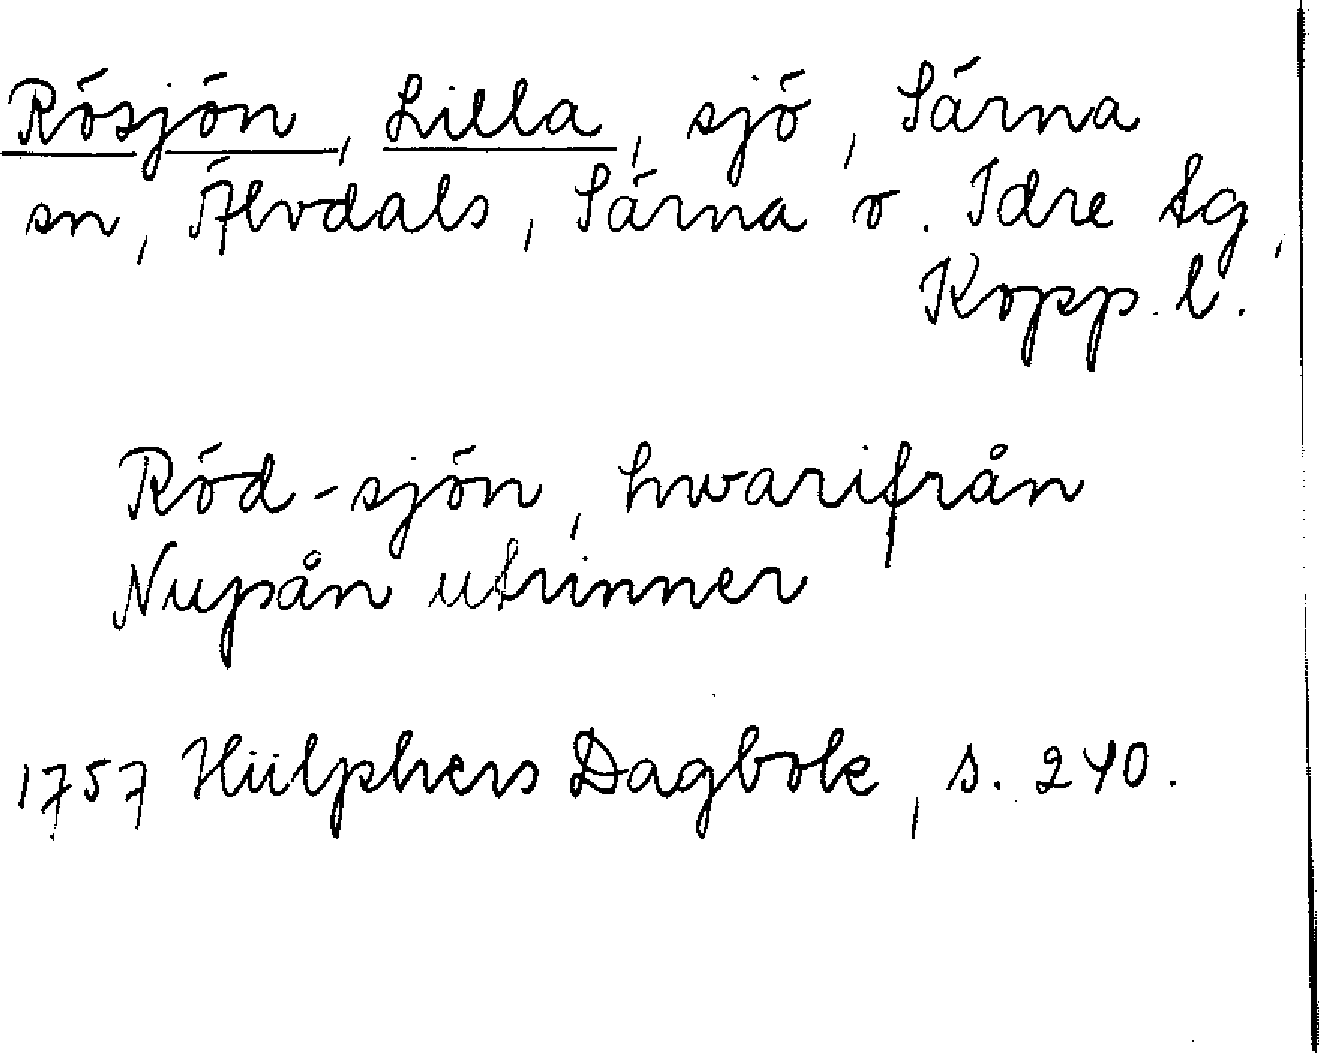 Rösjön, Lilla, sjö, Särna
sn, Älvdals, Särna o. Idre tg,
Kopp. l.
Röd-sjön, hwarifrån
Nupån utrinner
1757 Hülphers Dagbok, s. 240.